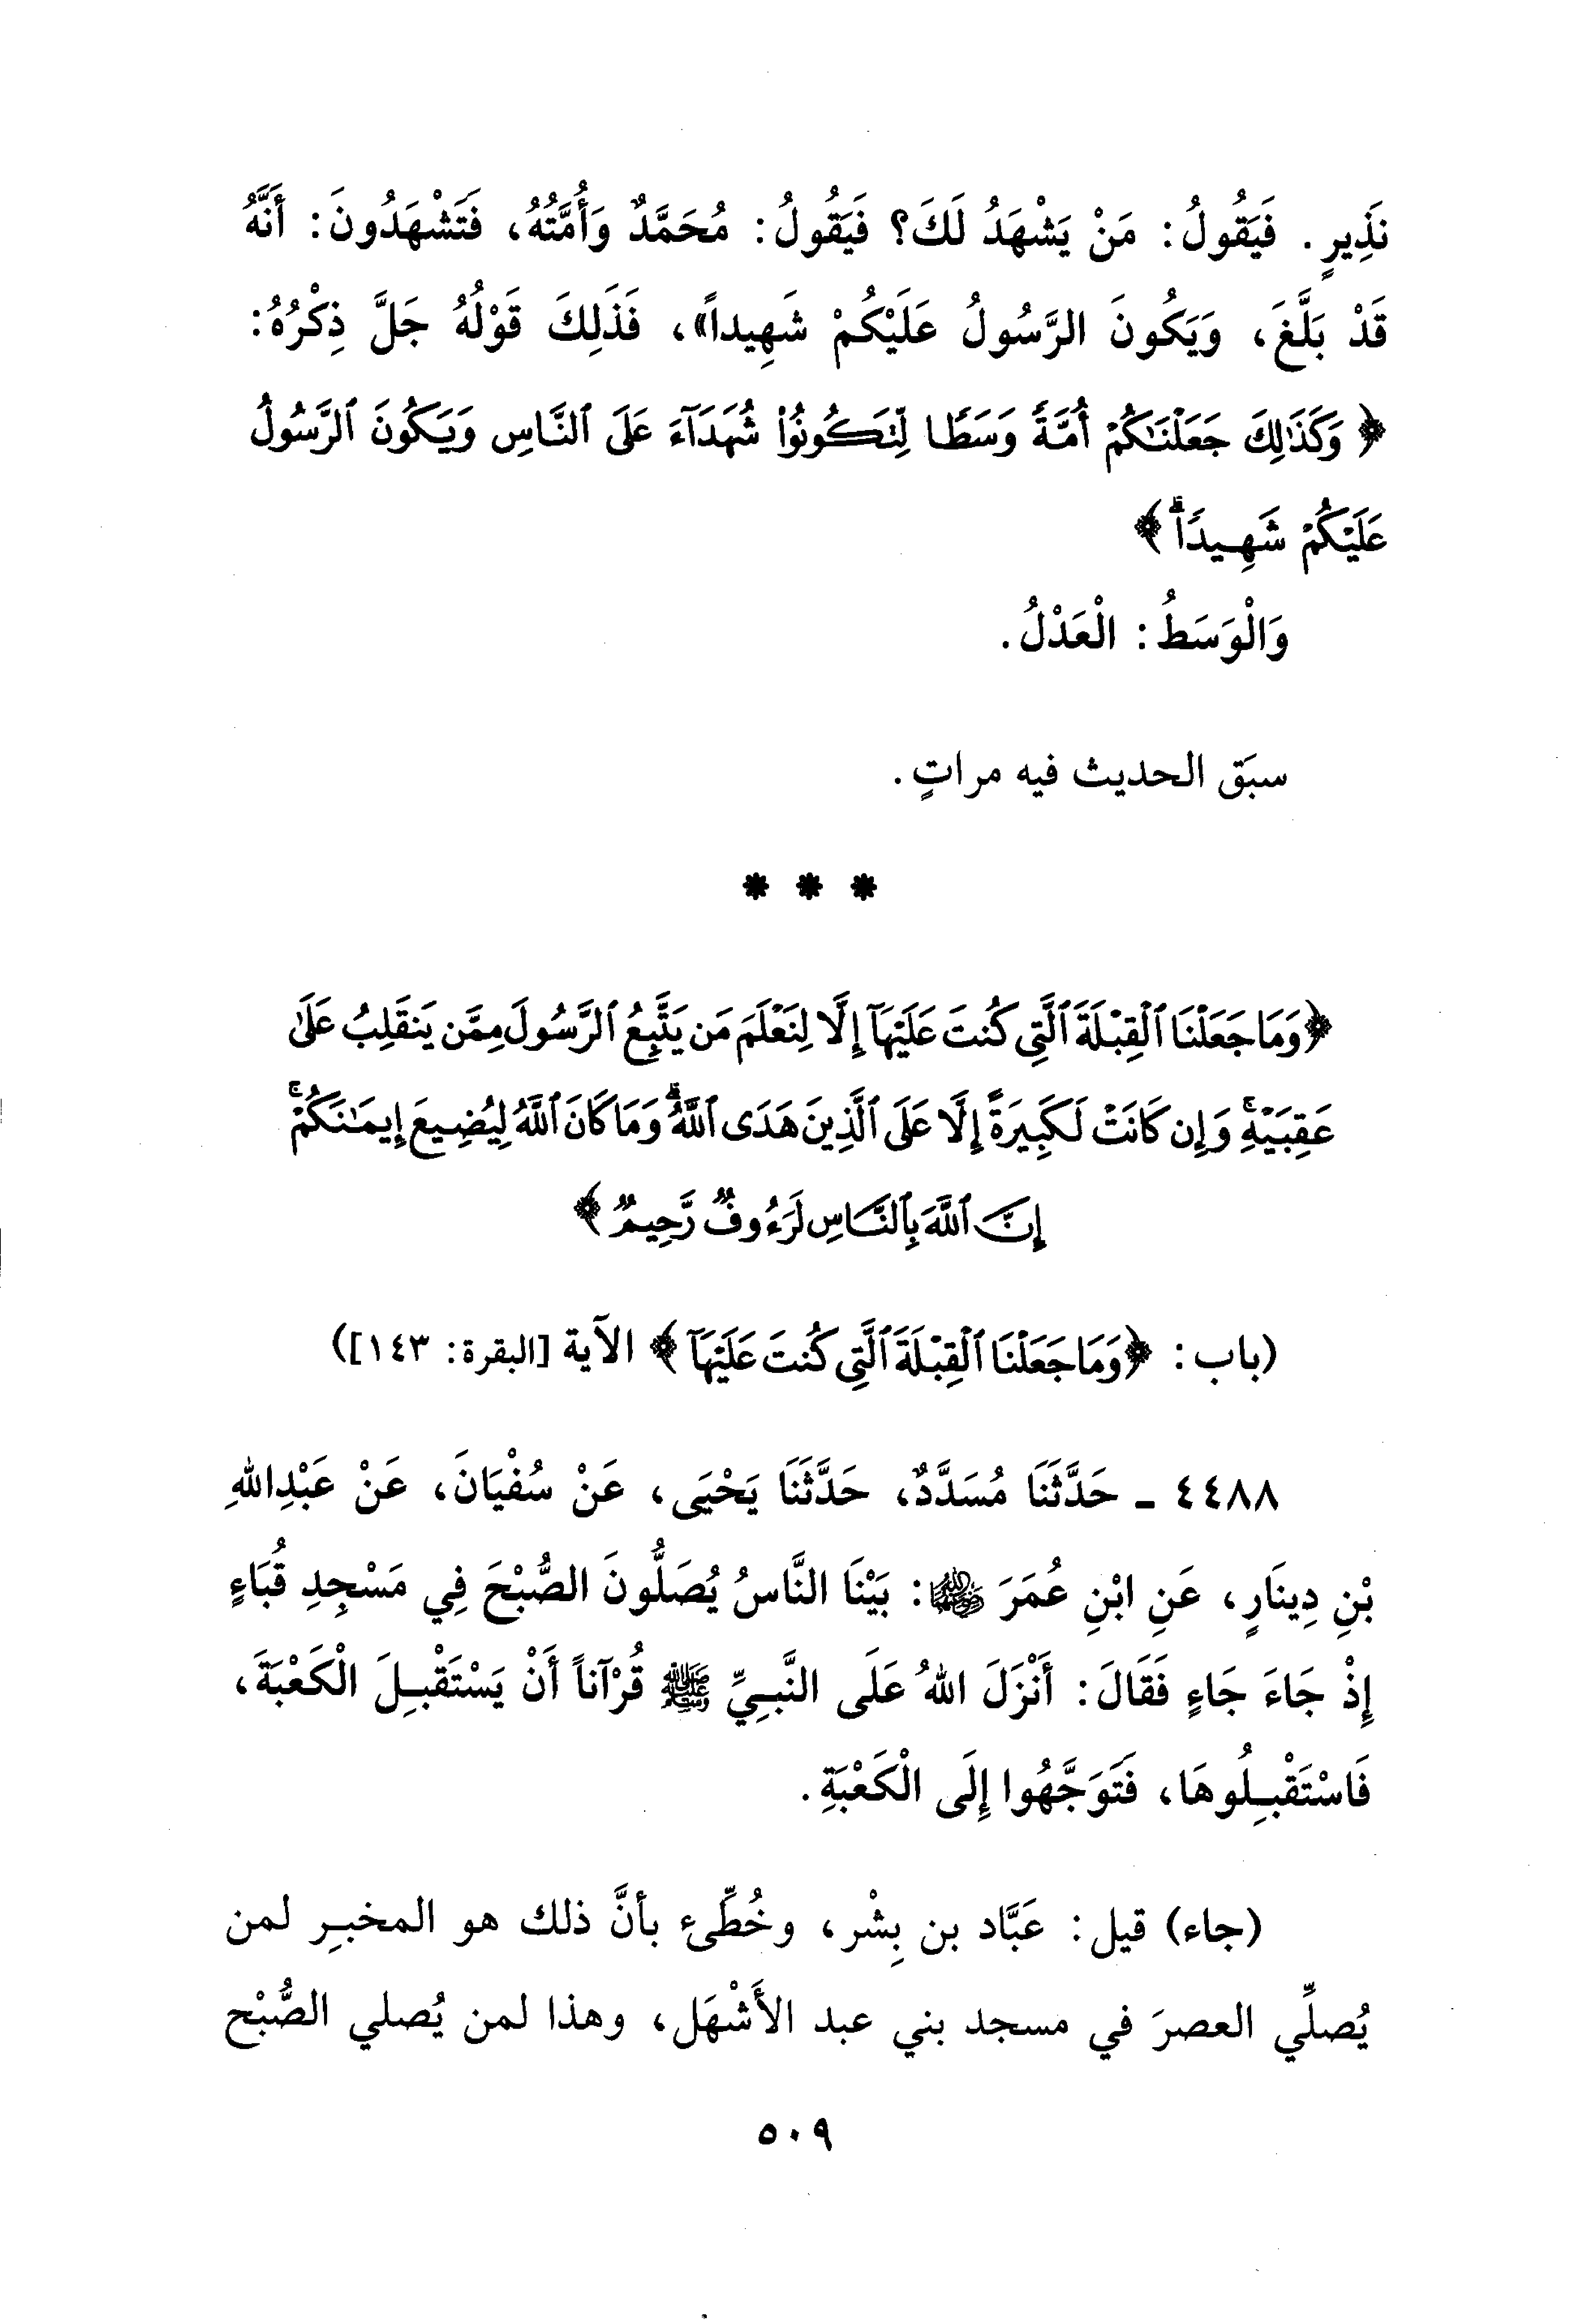 نَذِيرٍ. فَيَقُولُ: مَنْ يَشْهَدُ لَكَ؟ فَيَقُولُ: مُحَمَّدٌ وَأُمَّتُهُ، فَتَشْهَدُونَ: أَنَّهُ
قَدْ بَلَّغَ، وَيَكُونَ الرَّسُولُ عَلَيْكُمْ شَهِيداً»، فَذَلِكَ قَوْلُهُ جَلَّ ذِكْرُهُ:
﴿وَكَذَٰلِكَ جَعَلْنَـٰكُمْ أُمَّةً وَسَطًا لِّتَكُونُوا۟ شُهَدَآءَ عَلَى ٱلنَّاسِ وَيَكُونَ ٱلرَّسُولُ
عَلَيْكُمْ شَهِيدًاۗ﴾
وَالْوَسَطُ: الْعَدْلُ.
سبَق الحديث فيه مراتٍ.
* * *
﴿وَمَا جَعَلْنَا ٱلْقِبْلَةَ ٱلَّتِى كُنتَ عَلَيْهَآ إِلَّا لِنَعْلَمَ مَن يَتَّبِعُ ٱلرَّسُولَ مِمَّن يَنقَلِبُ عَلَىٰ
عَقِبَيْهِۚ وَإِن كَانَتْ لَكَبِيرَةً إِلَّا عَلَى ٱلَّذِينَ هَدَى ٱللَّهُۗ وَمَا كَانَ ٱللَّهُ لِيُضِيعَ إِيمَـٰنَكُمْۚ
إِنَّ ٱللَّهَ بِٱلنَّاسِ لَرَءُوفٌ رَّحِيمٌ﴾
(باب: ﴿وَمَا جَعَلْنَا ٱلْقِبْلَةَ ٱلَّتِى كُنتَ عَلَيْهَآ﴾ الآية [البقرة: ١٤٣])
٤٤٨٨ ـ حَدَّثَنَا مُسَدَّدٌ، حَدَّثَنَا يَحْيَى، عَنْ سُفْيَانَ، عَنْ عَبْدِاللهِ
بْنِ دِينَارٍ، عَنِ ابْنِ عُمَرَ رضي الله عنهما: بَيْنَا النَّاسُ يُصَلُّونَ الصُّبْحَ فِي مَسْجِدِ قُبَاءٍ
إِذْ جَاءَ جَاءٍ فَقَالَ: أَنْزَلَ اللهُ عَلَى النَّبِيِّ ﷺ قُرْآناً أَنْ يَسْتَقْبِلَ الْكَعْبَةَ،
فَاسْتَقْبِلُوهَا، فَتَوَجَّهُوا إِلَى الْكَعْبَةِ.
(جاء) قيل: عَبَّاد بن بِشْر، وخُطِّئ بأنَّ ذلك هو المخبِر لمن
يُصلِّي العصرَ في مسجد بني عبد الأَشْهَل، وهذا لمن يُصلي الصُّبْح
٥٠٩